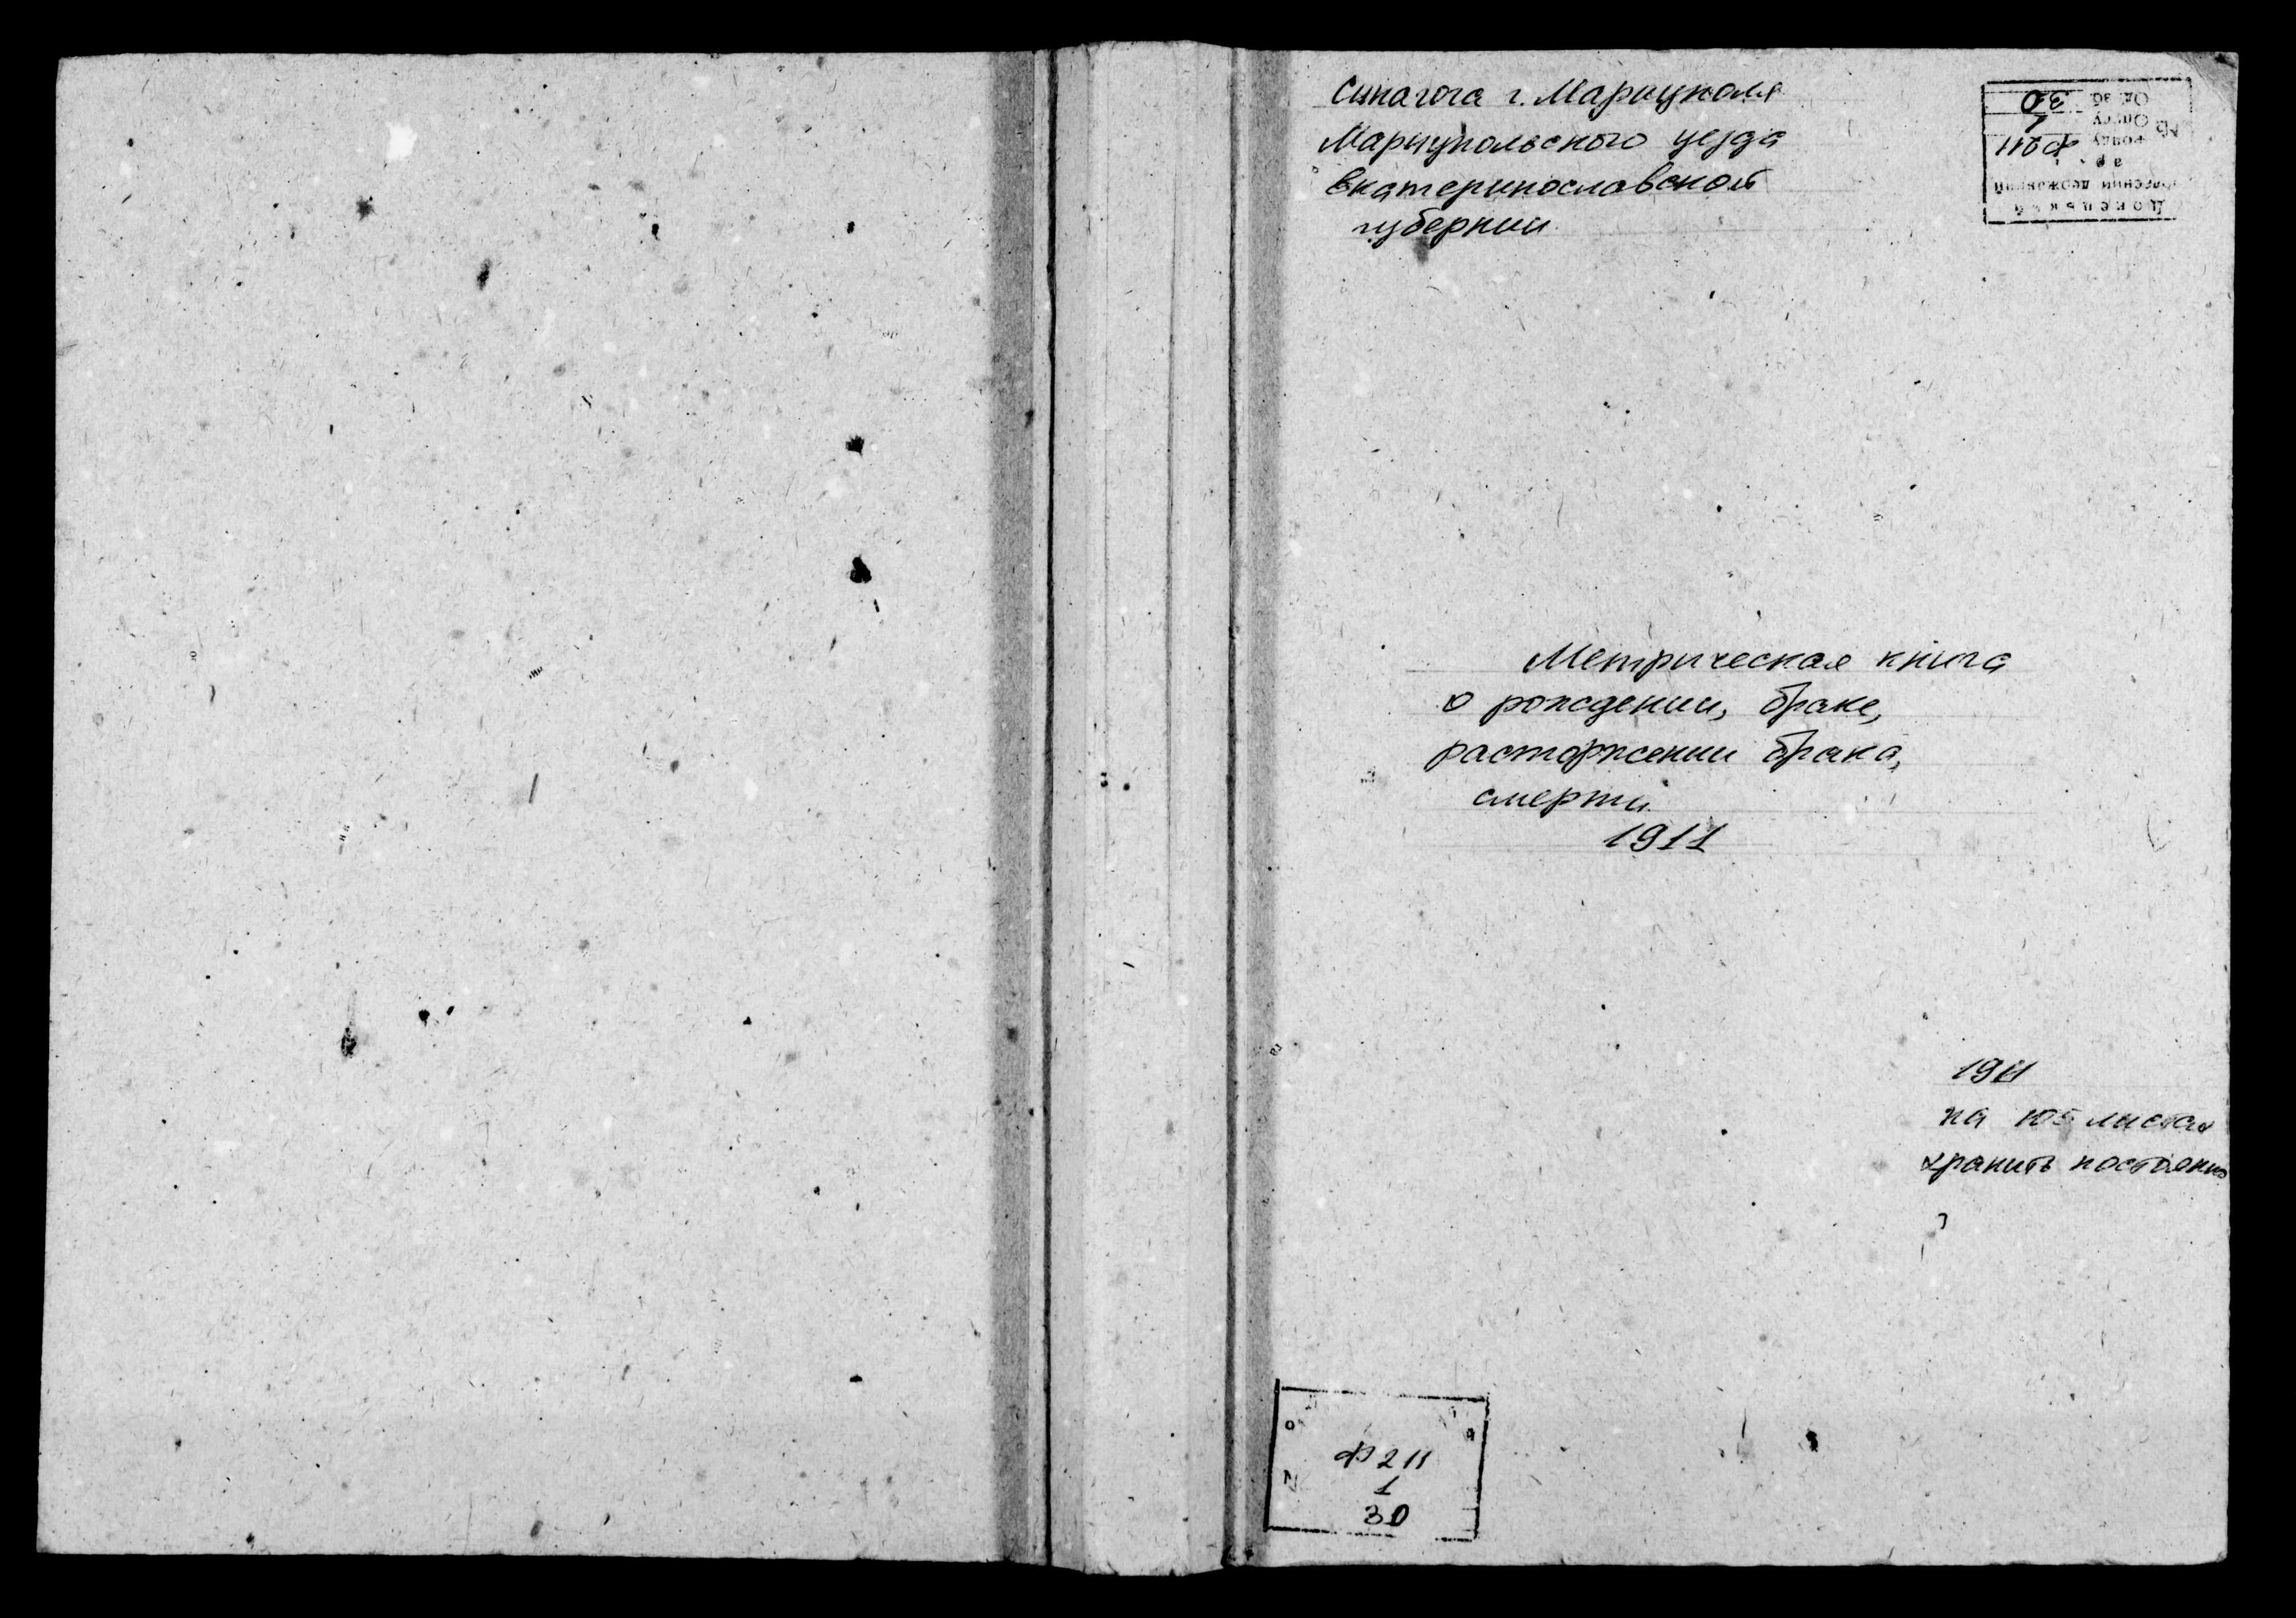 Синагога г. Мариуполя
Мариупольского уезда
Екатеринославской
губернии
Донецький
державний
Фонду Ф 211
№ Опису 1
Од. зб. 30
Метрическая книга
о рождении, браке,
расторжении брака,
смерти
1911
1911
на 105 листах
хранить постоянно
Ф 211
1
30